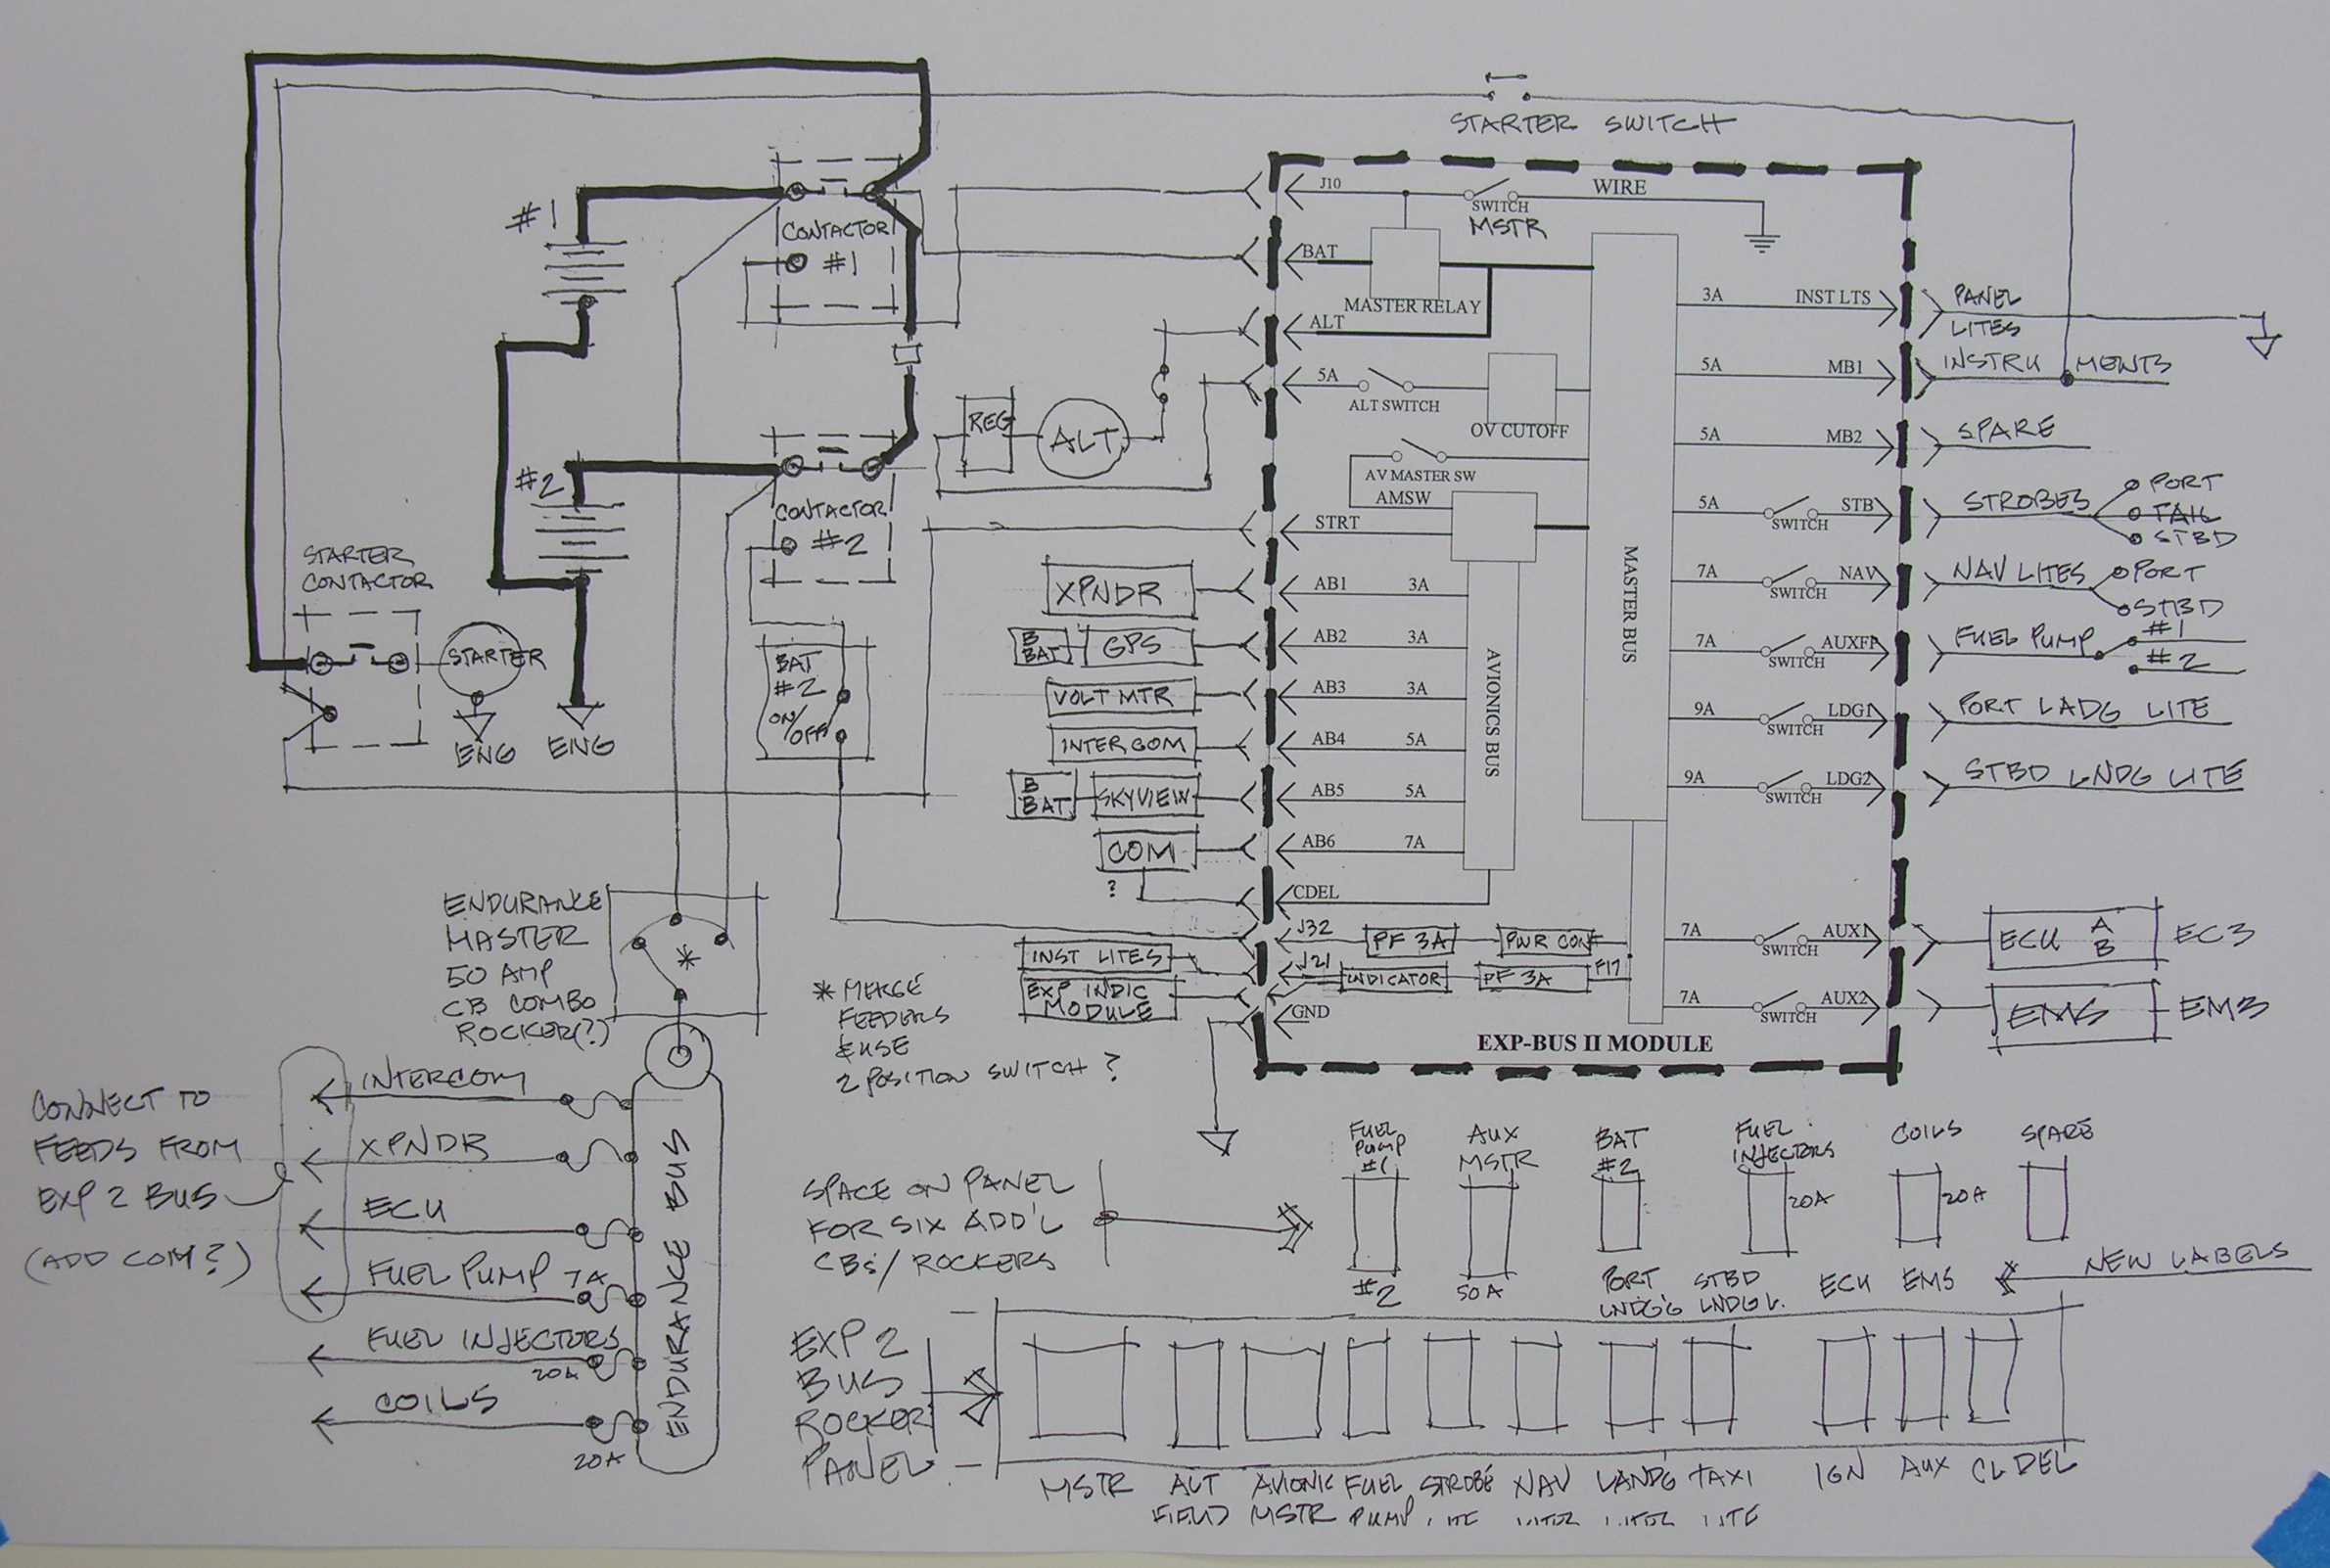 STARTER SWITCH
#1
CONTACTOR
#1
#2
CONTACTOR
#2
STARTER
CONTACTOR
STARTER
ENG
ENG
BAT
#2
ON/
OFF
REG
ALT
J10
SWITCH
MSTR
WIRE
BAT
MASTER RELAY
ALT
5A
ALT SWITCH
OV CUTOFF
AV MASTER SW
AMSW
STRT
XPNDR
AB1 3A
B
BAT
GPS
AB2 3A
VOLT MTR
AB3 3A
INTERCOM
AB4 5A
B
BAT
SKYVIEW
AB5 5A
COM
?
AB6 7A
CDEL
AVIONICS BUS
MASTER BUS
INST LITES
EXP INDIC
MODULE
J32
PF 3A
PWR CONT
J21
INDICATOR
PF 3A
F17
GND
EXP-BUS II MODULE
3A INST LTS
PANEL
LITES
5A MB1
INSTRUMENTS
5A MB2
SPARE
5A SWITCH STB
STROBES
PORT
TAIL
STBD
7A SWITCH NAV
NAV LITES
PORT
STBD
7A SWITCH AUXFP
FUEL PUMP
#1
#2
9A SWITCH LDG1
PORT LADG LITE
9A SWITCH LDG2
STBD LNDG LITE
7A SWITCH AUX1
ECU A
B
EC3
7A SWITCH AUX2
EMS
EM3
ENDURANCE
MASTER
50 AMP
CB COMBO
ROCKER(?)
*
* MERGE
FEEDERS
& USE
2 POSITION SWITCH ?
CONNECT TO
FEEDS FROM
EXP 2 BUS
(ADD COM?)
INTERCOM
XPNDR
ECU
FUEL PUMP 7A
FUEL INJECTORS
20A
COILS
20A
ENDURANCE BUS
SPACE ON PANEL
FOR SIX ADD'L
CBs/ROCKERS
FUEL
PUMP
#1
#2
AUX
MSTR
50A
BAT
#2
FUEL
INJECTORS
20A
COILS
20A
SPARE
PORT
LNDG'G
STBD
LNDG L.
ECU
EMS
NEW LABELS
EXP 2
BUS
ROCKER
PANEL
MSTR
ALT
FIELD
AVIONIC
MSTR
FUEL
PUMP
STROBE
LITE
NAV
LAND'G
TAXI
LITE
IGN
AUX
CL DEL